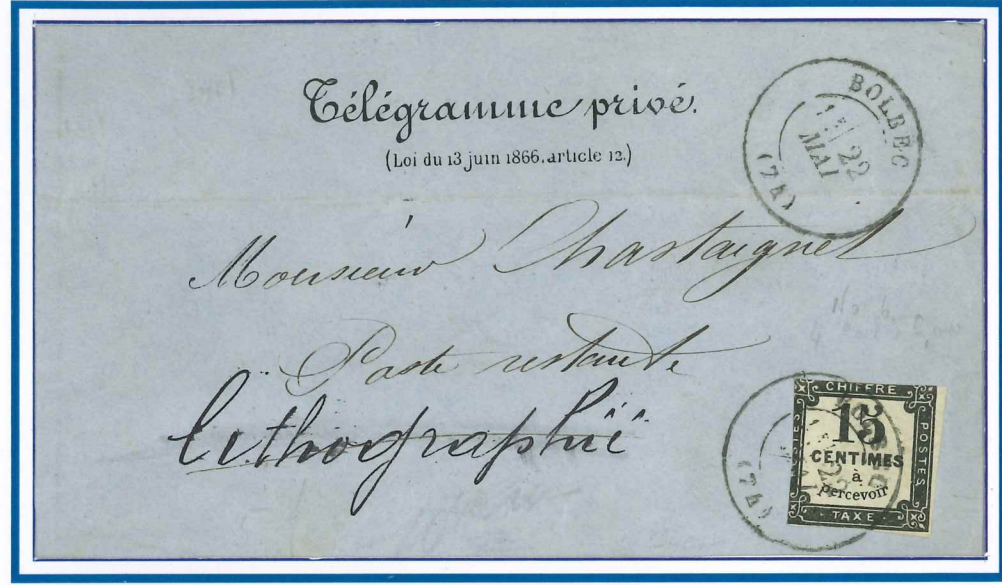 Télégramme privé.
(Loi du 13 juin 1866, article 12.)
BOLBEC
22
MAI
(74)
Monsieur Chastaignet
Poste restante
Lithographiï
CHIFFRE
15
CENTIMES
à
percevoir
POSTES
TAXE
22
(74)